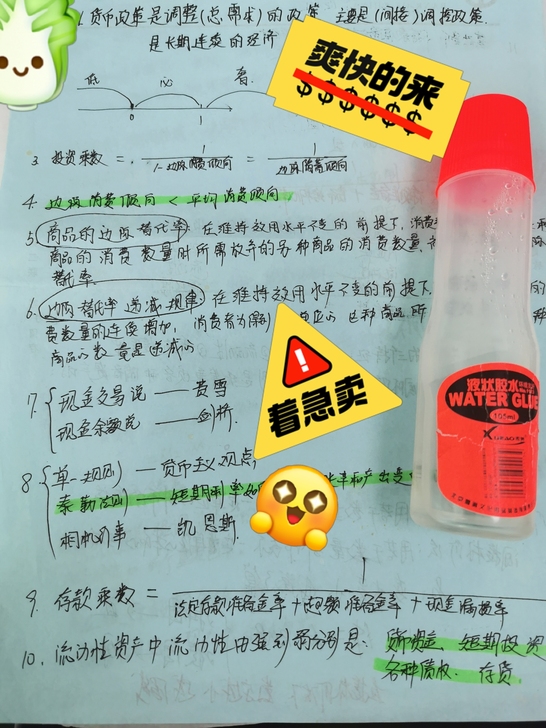 1. 货币政策是调整(总需求)的政策 主要是(间接)调控政策
是长期连续的经济
低
富
0
1
爽快的来
$$$$$$
3. 投资乘数 = 1/1-边际消费倾向 = 1/边际储蓄倾向
4. 边际消费倾向 < 平均消费倾向
5. 商品的边际替代率 在维持效用水平不变的前提下, 消费
商品的消费数量时所需放弃的另种商品的消费数量
替代率
6. 边际替代率递减规律 在维持效用水平不变的前提下
费数量的连续增加, 消费者为 这种商品所
商品的数量是递减的
着急卖
7. 现金交易说 — 费雪
现金余额说 — 剑桥
8 单一规则 — 货币主义观点
泰勒法则 — 短期利率如 产出
相机行事 — 凯恩斯
9. 存款乘数 = 1/法定存款准备金率 + 超额准备金率 + 现金漏损率
10. 流动性资产中流动性由强到弱分别是: 货币资金、短期投资
各种债权、存货
液状胶水
WATER GLUE
105ml